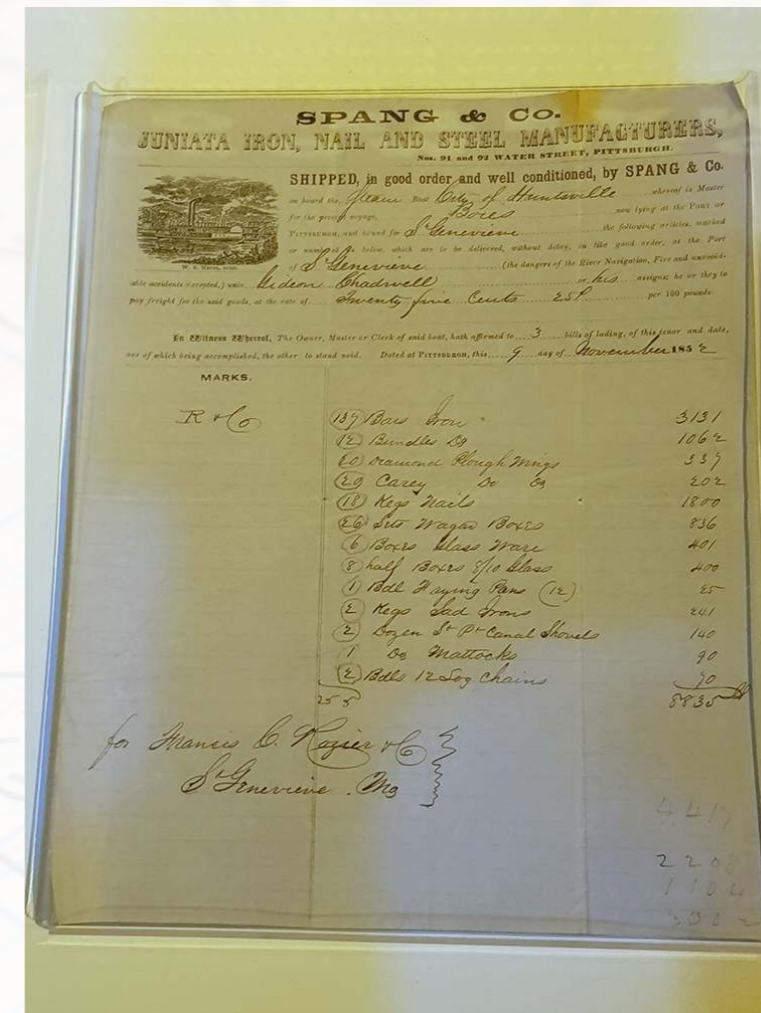 SPANG & CO.
JUNIATA IRON, NAIL AND STEEL MANUFACTURERS,
Nos. 91 and 92 WATER STREET, PITTSBURGH.
SHIPPED, in good order and well conditioned, by SPANG & Co.
on board the Steam Boat City of Huntsville whereof is Master
for the present voyage, Bores now lying at the Port of
PITTSBURGH, and bound for St Genevieve the following articles, marked
or numbered as below, which are to be delivered, without delay, in like good order, at the Port
of St Genevieve (the dangers of the River Navigation, Fire and unavoid-
able accidents excepted,) unto Gideon Chadwell or his assigns; he or they to
pay freight for the said goods, at the rate of Twenty five Cents 25¢ per 100 pounds
In Witness Whereof, The Owner, Master or Clerk of said boat, hath affirmed to 3 bills of lading, of this tenor and date,
one of which being accomplished, the other to stand void. Dated at PITTSBURGH, this 9 day of November 1852
MARKS.
R & Co 137 Bars Iron 3131
12 Bundles Do 1062
20 Diamond Plough Wings 337
20 Carey Do Do 202
18 Kegs Nails 1800
26 Sets Wagan Boxes 836
6 Boxes Glass Ware 401
8 half Boxes 8/10 Glass 400
1 Bdl Frying Pans (12) 25
2 Kegs Sad Irons 241
2 Dozen St Pt Canal Shovels 140
1 Do Mattocks 90
2 Bdls 12 Log Chains 70
255 8835
for Francis C. Rozier & Co
St Genevieve. Mo